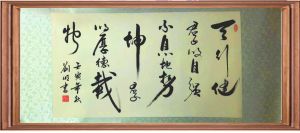 天行健
君子以自强
不息地势
坤君子
以厚德载
物